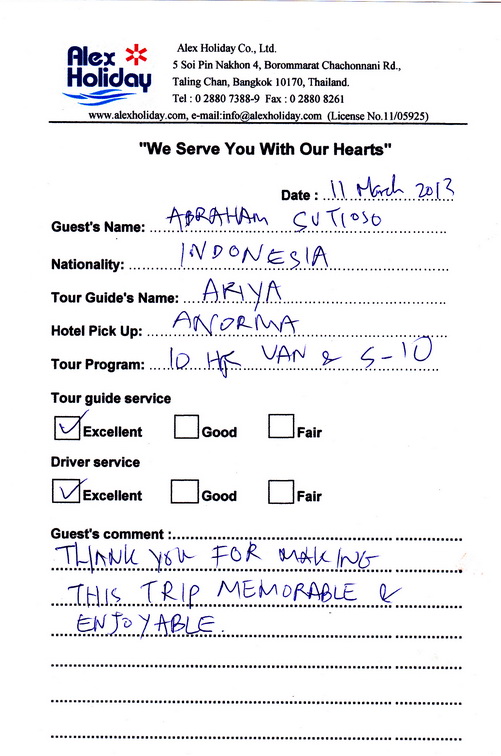 Alex Holiday
Alex Holiday Co., Ltd.
5 Soi Pin Nakhon 4, Borommarat Chachonnani Rd.,
Taling Chan, Bangkok 10170, Thailand.
Tel : 0 2880 7388-9 Fax : 0 2880 8261
www.alexholiday.com, e-mail:info@alexholiday.com (License No.11/05925)
"We Serve You With Our Hearts"
Date : 11 March 2013
Guest's Name: ABRAHAM SUTIOSO
Nationality: INDONESIA
Tour Guide's Name: ARIYA
Hotel Pick Up: ANORMA
Tour Program: 10 VAN & 5-10
Tour guide service
Excellent Good Fair
Driver service
Excellent Good Fair
Guest's comment :
THANK YOU FOR MAKING
THIS TRIP MEMORABLE &
ENJOYABLE.